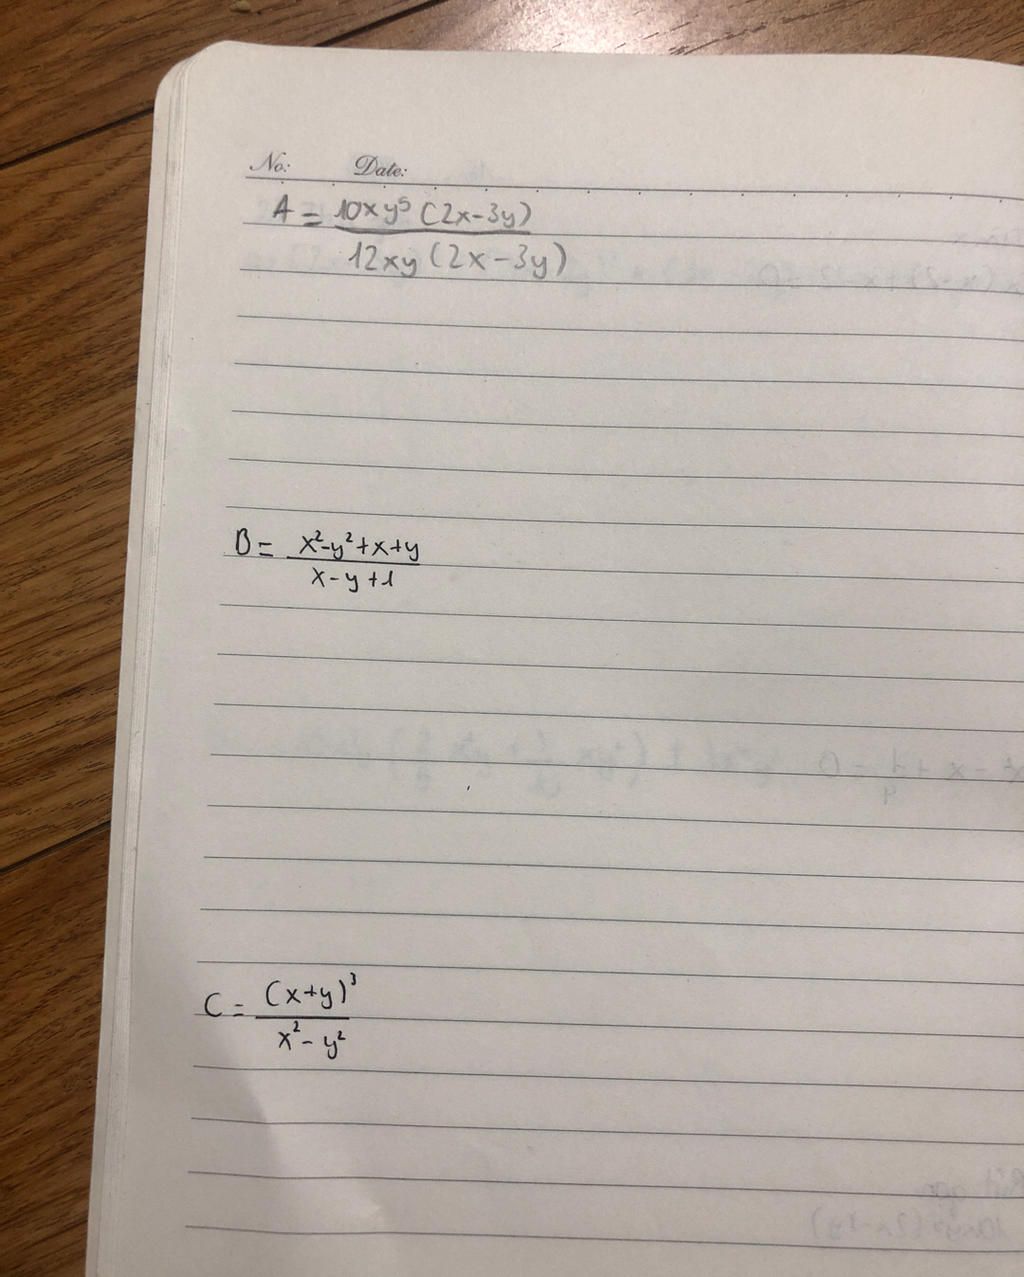 No: Date:
A = 10xy⁵ (2x-3y)
12xy (2x-3y)
B = x²-y²+x+y
x-y+1
C = (x+y)³
x²-y²